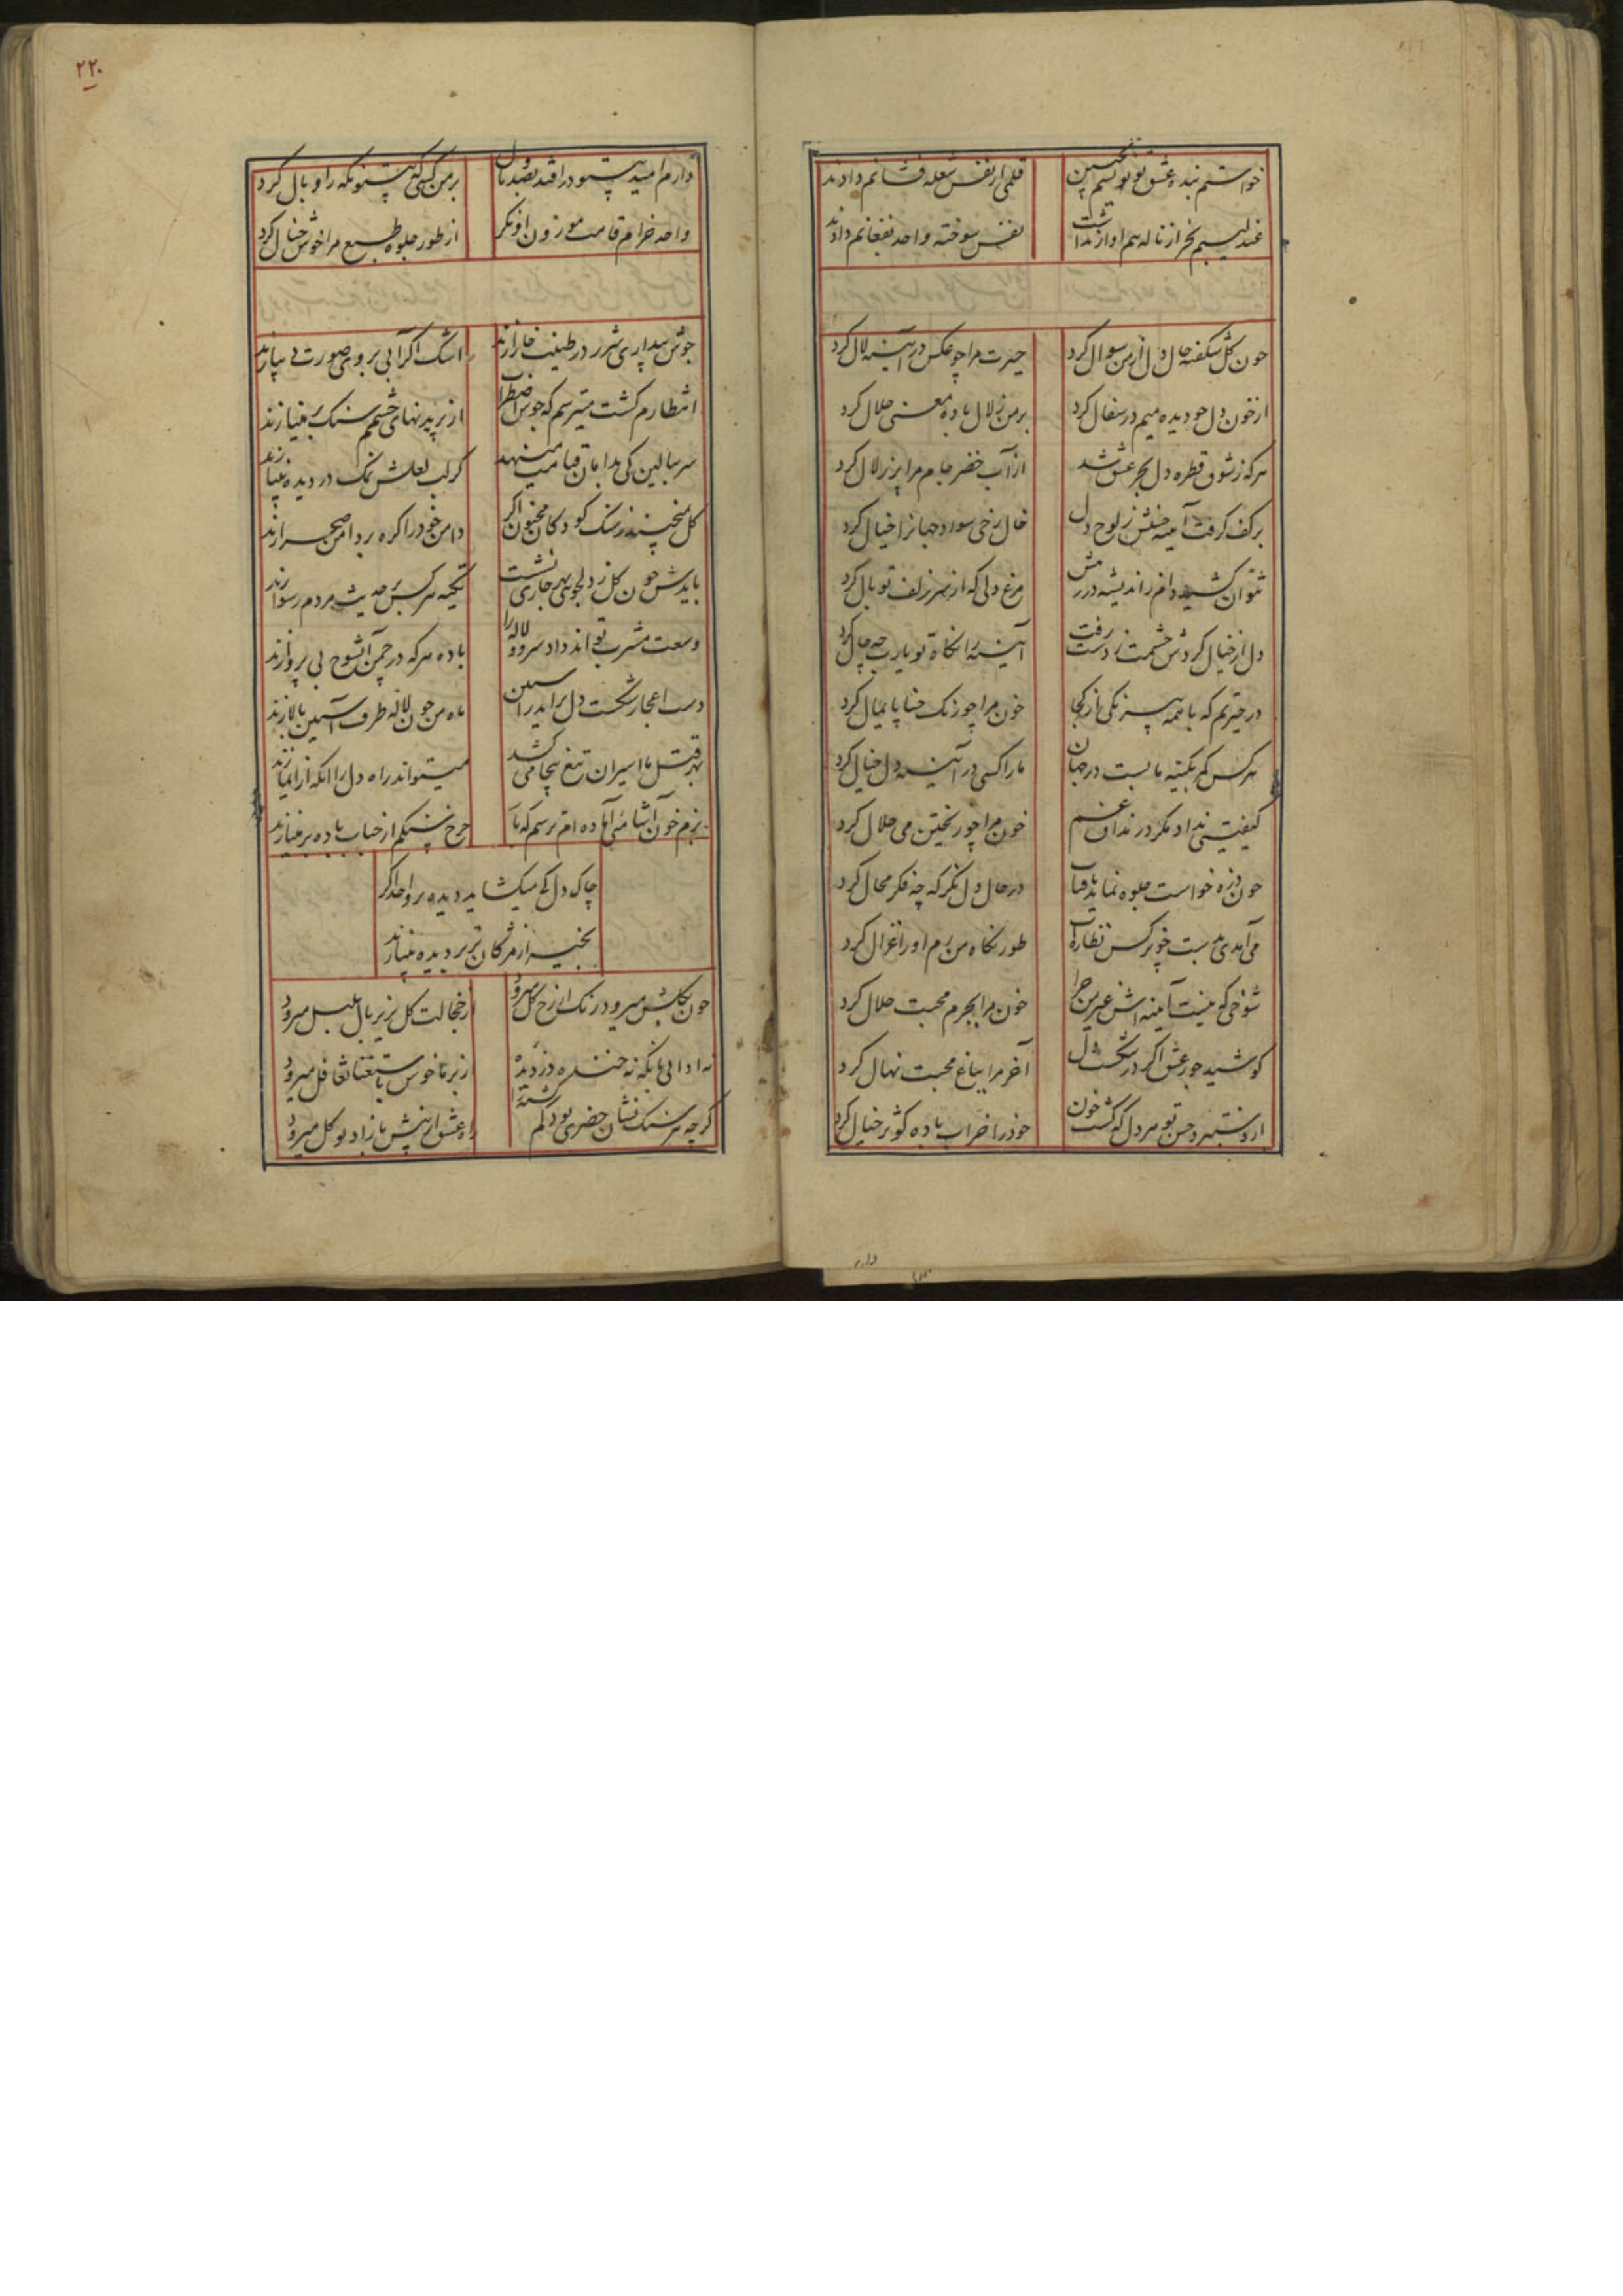 خواستم بنده عشق تو نویسم بجبین قلمی از نفس شعله فشانم دادند
عندلیبم بجز از ناله هم اواز نداشت نفس سوخته واحد بفغانم دادند
چون گل شکفته حال دل از من سوال کرد حیرت مرا چو عکس در آینه لال کرد
از خون دل چو دیده میم در سفال کرد بر من زلال باده معنی حلال کرد
هر که ز شوق قطره دل بحر عشق شد از آب خضر جام مرا پر زلال کرد
بر کف گرفت آینه حسنش ز لوح دل خال رخی سواد جهانرا خیال کرد
نتوان کشید دام ز اندیشه در رهش مرغ دلی که از سر زلف تو بال کرد
دل از خیال گردش چشمت ز دست رفت آینه را نگاه تو یارب چه حال کرد
در حیرتم که با همه نیرنگی از کجا خون مرا چو رنگ حنا پایمال کرد
هر کس کمر بکینه ما بست در جهان ما را کسی در آینه دل خیال کرد
کیفیتی نداد مگر در مذاق غم خون مرا چو ریختن می حلال کرد
چون ذره خواست جلوه نماید بافتاب در حال دل نگر که چه فکر محال کرد
می آمدی بدست چو نرگس نظاره ات طور نگاه من رم او را غزال کرد
شوخی که نیست آینه اش غیر من چرا خون مرا بجرم محبت حلال کرد
کوشید جور عشق اگر در شکست دل آخر مرا بباغ محبت نهال کرد
از دستبرد حسن تو هر دل که گشت خون خود را خراب باده کوثر خیال کرد
دارم
۲۲۰
دارم امید پستو در افتد بصد بال بر من کسی که نگه را وبال کرد
واحد خرام قامت موزون او نگر از طور جلوه طبع مرا خوش خیال کرد
جوش بیداری شرر در طینت خارا زند اشک اگر آبی بروی صورت دیبا زند
انتظارم گشت میترسم که جوش اضطراب از پریدنهای چشمم سنگ بر مینا زند
سر ببالین کی بدامان قیامت مینهد گر لب لعلش نمک در دیده بینا زند
گل نچیند ز سنگ کودکان مجنون اگر دامن خود را گره بر دامن صحرا زند
بایدش چون گل ز دلجویی بهر جا نشست تکیه هر کس بر حدیث مردم رسوا زند
وسعت مشرب تواند داد سرو و لاله را باده هر که در چمن آن شوخ بی پروا زند
دست اعجاز شکست دل براید ز آستین ماه من چون لاله طرف آستین بالا زند
بهر قتل ما اسیران تیغ بیجا می کشد میتواند راه دل را آنکه از ایما زند
بزم خون آشامی آماده ام ترسم که باز چرخ سنگم از حباب باده بر مینا زند
چاک دل کی میگشاید دیده بر واحد اگر
بخیه از مژگان تر بر دیده بینا زند
چون بگلشن میرود رنگ از رخ گل میرود از خجالت گل بزیر بال بلبل میرود
نه ادایی نه نگه نه خنده دزدیده زیر ناخوش باستغنا تغافل میرود
گر چه هر سنگ نشان خضری بود گم گشته را راه عشق از بینش با زاد توکل میرود